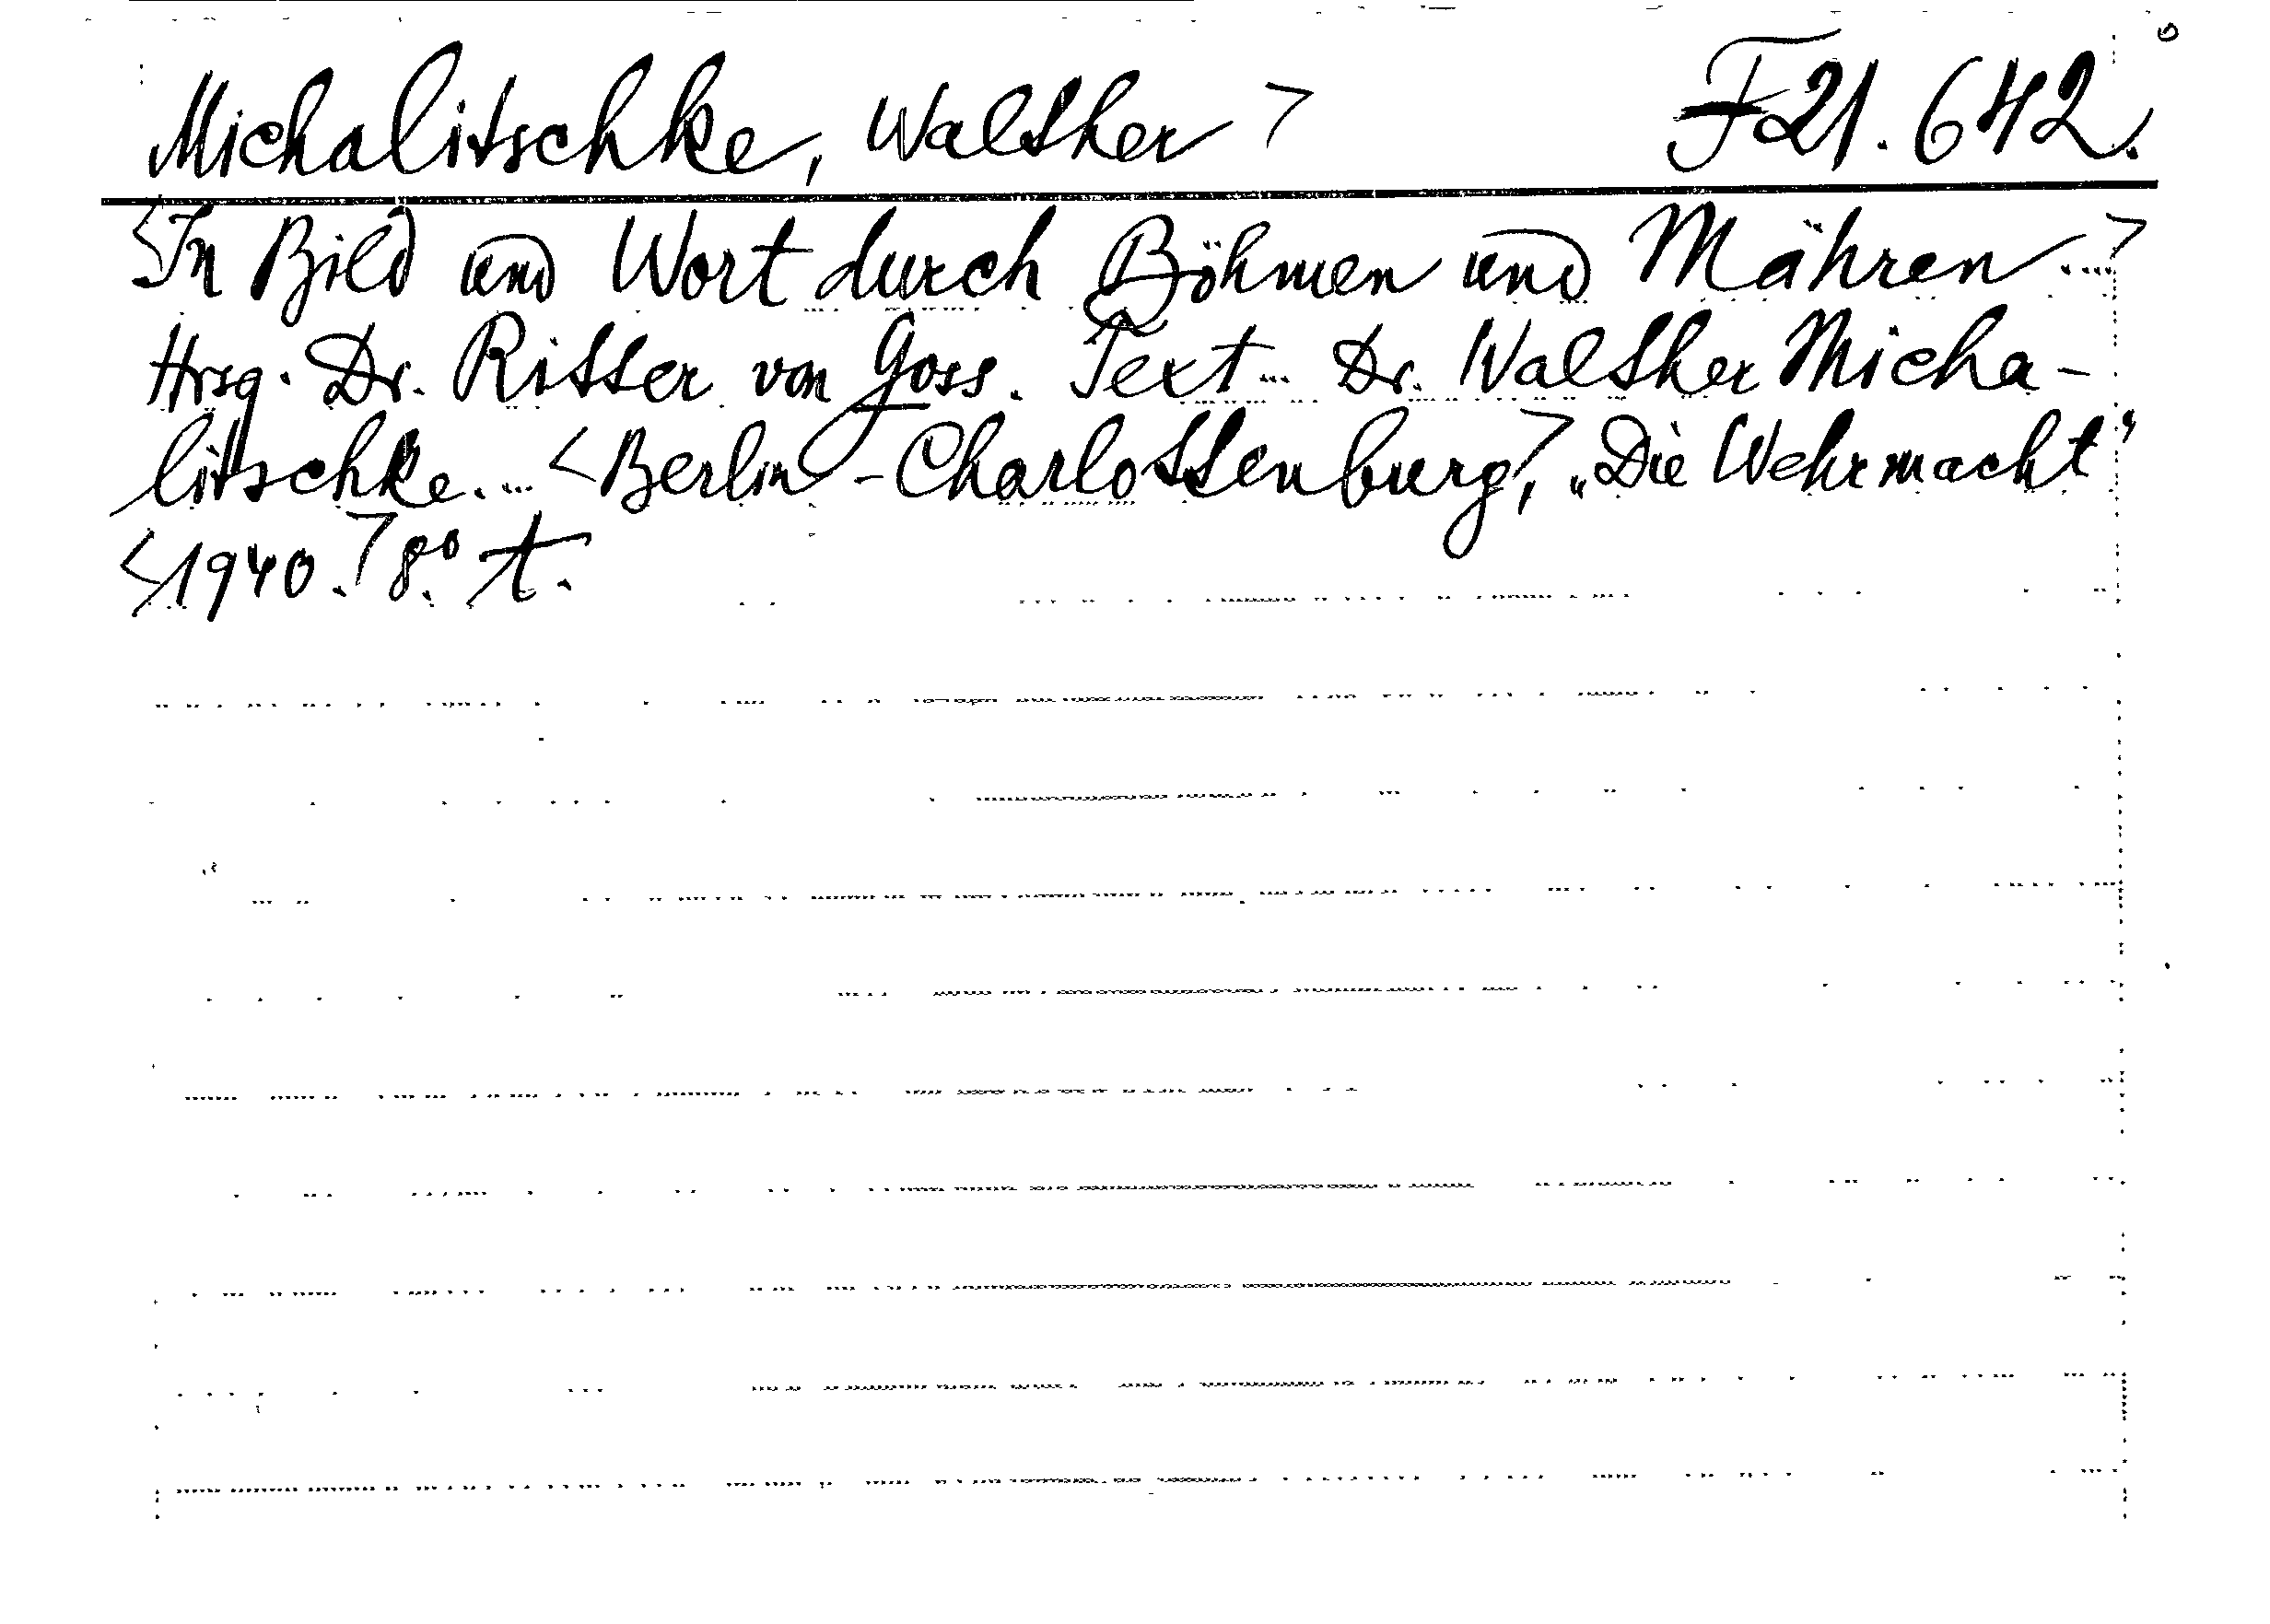 Michalitschke, Walther > F 21.642.
<In Bild und Wort durch Böhmen und Mähren...>
Hrsg. Dr. Ritter von Goss. Text... Dr. Walther Micha-
litschke.... <Berlin-Charlottenburg,> „Die Wehrmacht"
<1940.> 8º. t.